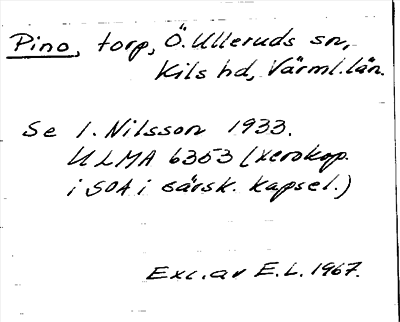 Pino, torp, Ö. Ulleruds sn,
Kils hd, Värml. län.
Se I. Nilsson 1933.
ULMA 6353 (xerokop.
i SOA i särsk. kapsel.)
Exc. av E.L. 1967.